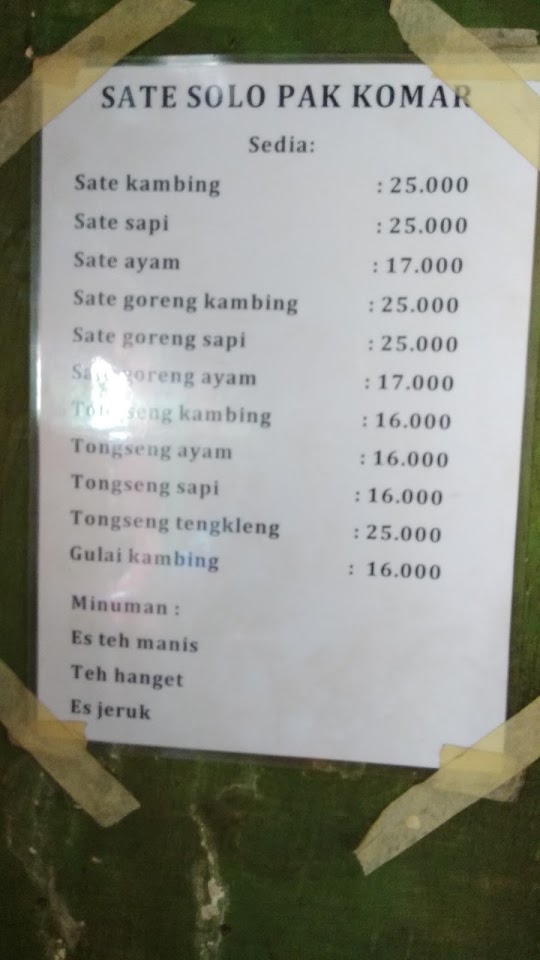 SATE SOLO PAK KOMAR
Sedia:
Sate kambing : 25.000
Sate sapi : 25.000
Sate ayam : 17.000
Sate goreng kambing : 25.000
Sate goreng sapi : 25.000
Sate goreng ayam : 17.000
Tongseng kambing : 16.000
Tongseng ayam : 16.000
Tongseng sapi : 16.000
Tongseng tengkleng : 25.000
Gulai kambing : 16.000
Minuman :
Es teh manis
Teh hanget
Es jeruk